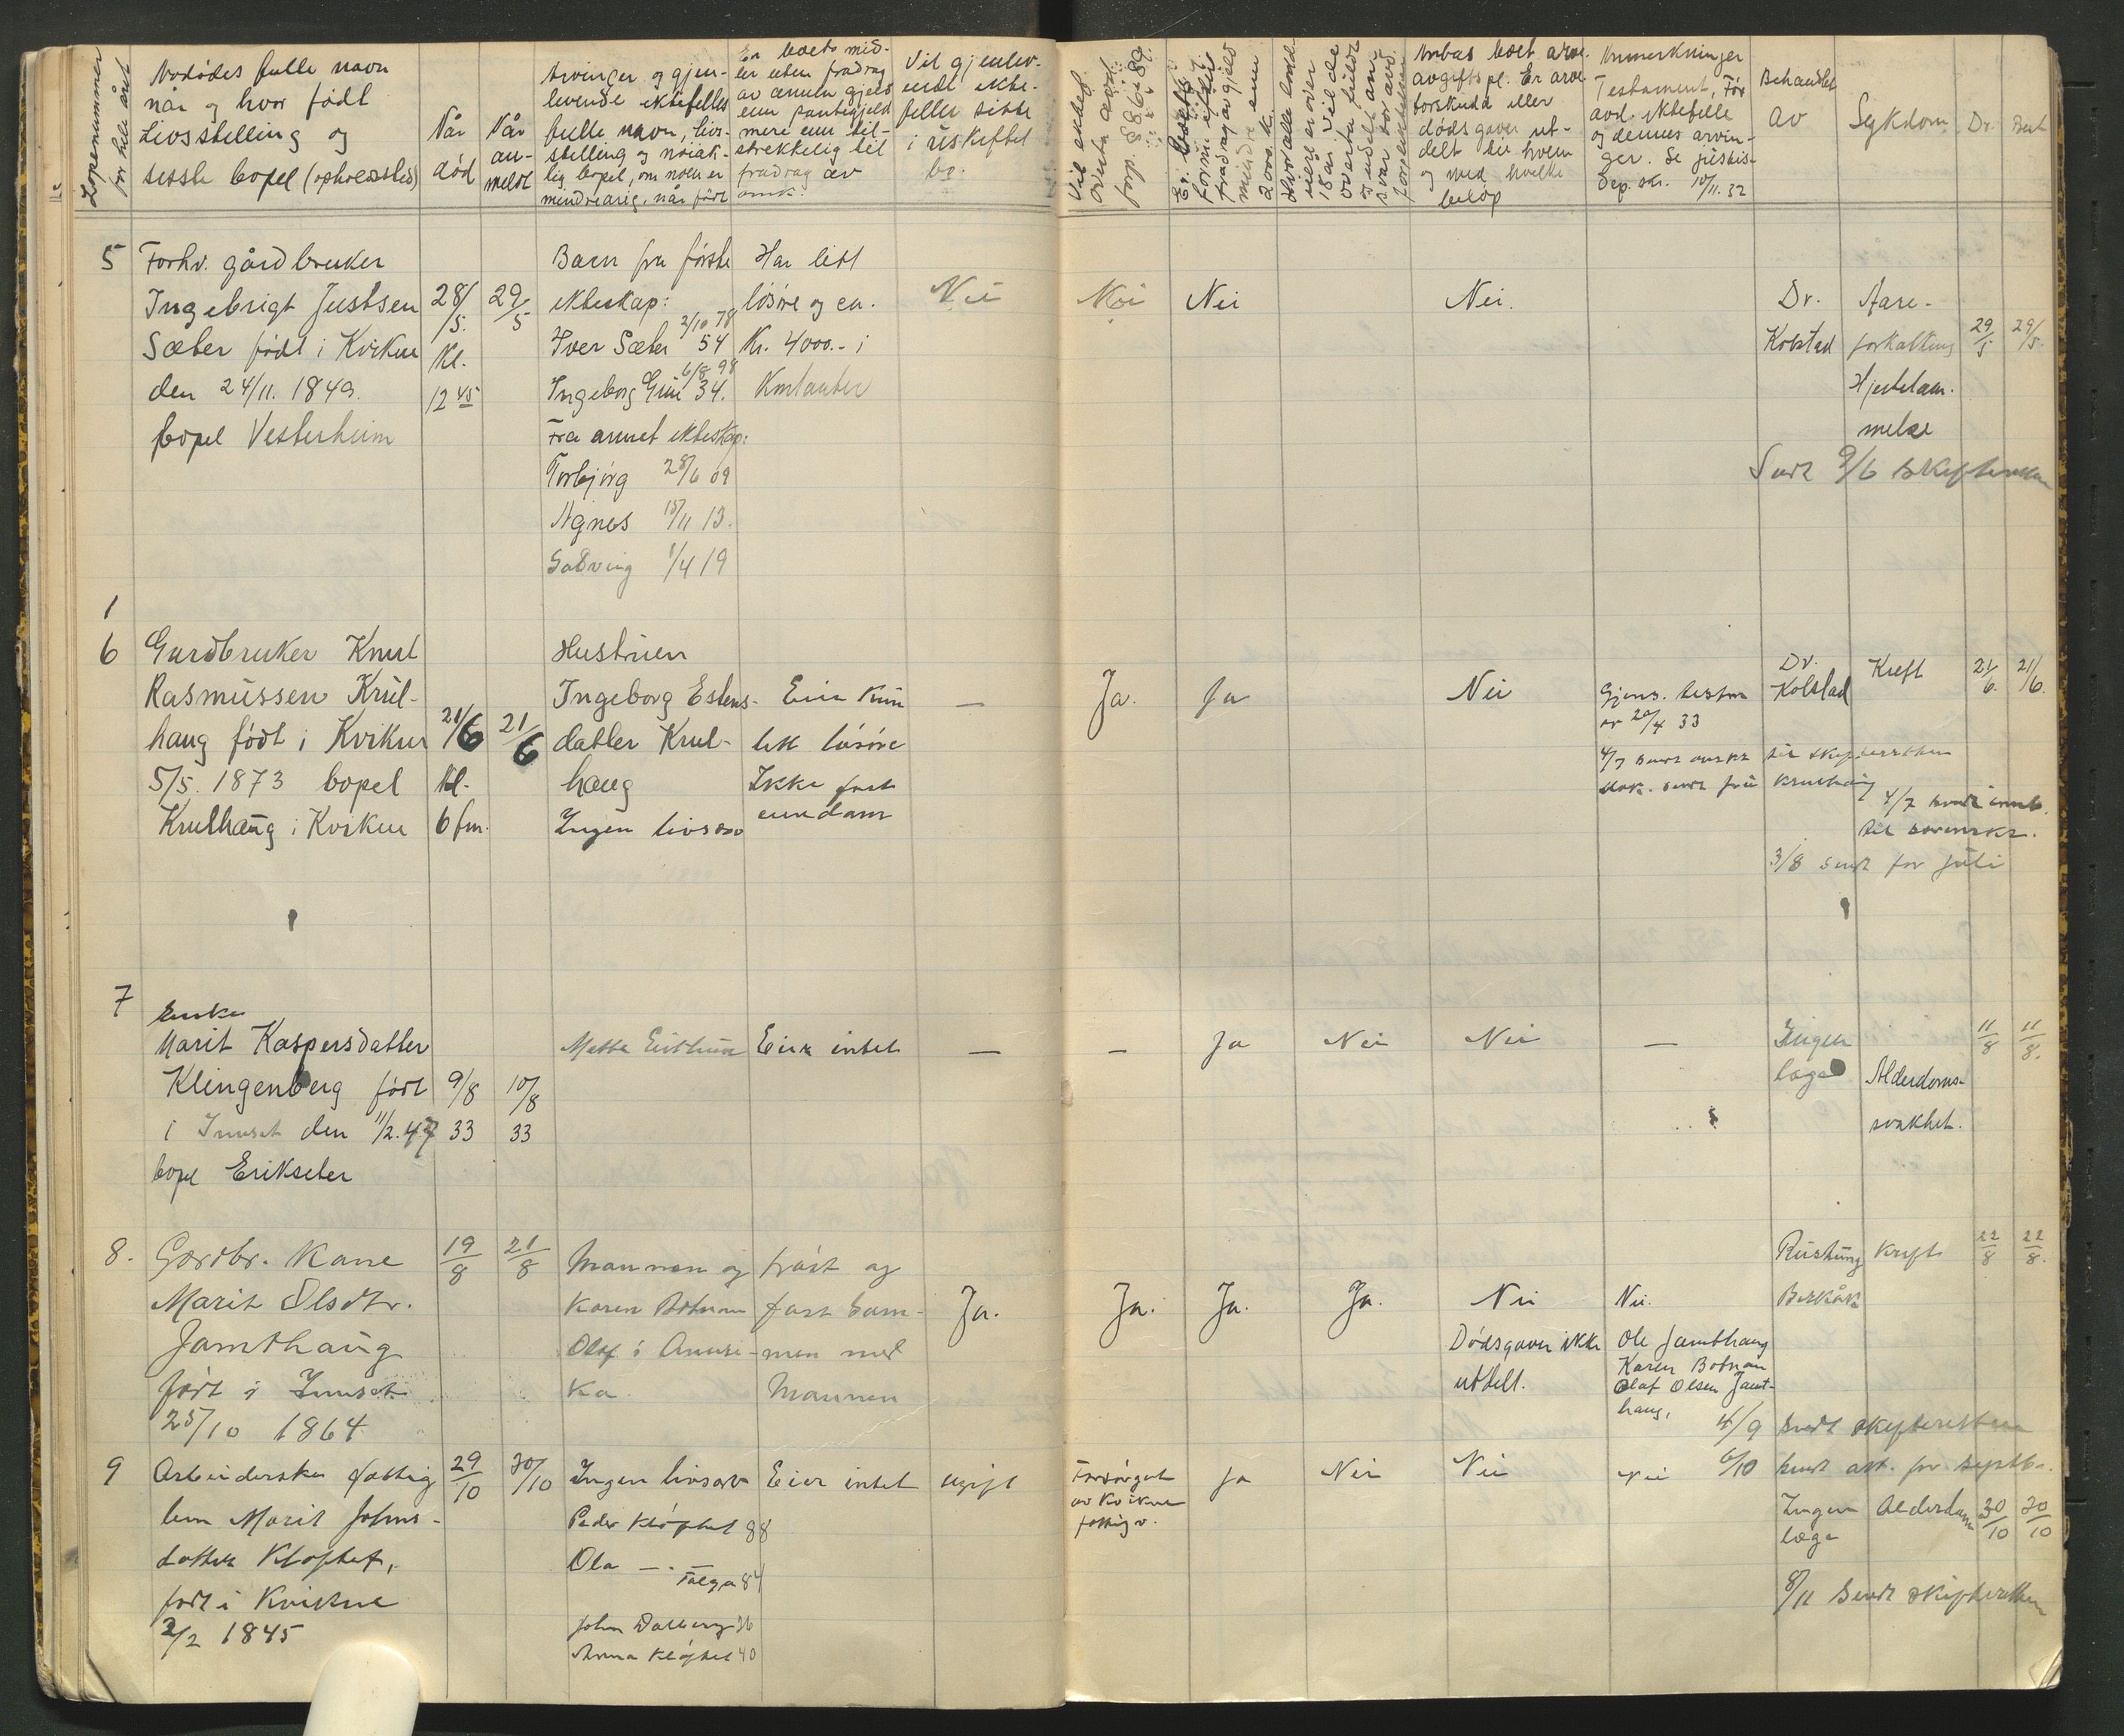 Løpenummer
for hele året
Avdødes fulle navn
når og hvor født
Livsstilling og
siste bopel (opholdssted)
Når
død
Når
an-
meldt
Arvinger og gjen-
levende ektefelles
fulle navn, livs-
stilling og nöiak-
tig bopel, om noen er
mindreårig, når født
Er boets mid-
ler uten fradrag
av annen gjeld
enn pantegjeld
mere enn til-
strekkelig til
fradrag av
omk.
Vil gjenlev-
ende ekte-
felle sitte
i uskiftet
bo.
Vil ektef.
overta
forp.
Er boets
form. efter
fradrag av gjeld
mindre enn
2000 k.
Hvor alle
er over
18 år. Vil de
overta fulde
ansvar for avd.
forpliktelser
Antas boet arve-
avgiftspl. Er arve
forskudd eller
dödsgaver ut-
delt til hvem
og med hvilke
belöp
Anmerkninger
Testament, For
avd. ektefelle
og dennes arvin-
ger. Se justis-
dep. skr. 10/11. 32
Behandlet
av
Sykdom
Dr.
5
Forhv. gårdbruker
Ingebrigt Justsen
Sæter født i Kvikne
den 24/11. 1849.
bopel Vesterheim
28/5.
Kl.
12 45
29/5
Barn fra første
ekteskap:
2/10 78
Iver Sæter 54
6/8 98
Ingeborg 34.
Fra annet ekteskap:
Torbjörg 28/6 09
Agnes 15/11 13.
1/4 19
Har litt
lösöre og ca.
Kr. 4000.- i
Kontanter
Nei
Nei
Nei
Nei.
Dr.
Kolstad
Aare-
forkalkning
Hjertelam-
melse
29/5
29/5.
Sendt 9/6 skifteretten
1
6
Gardbruker Knut
Rasmussen Krul-
haug født i Kvikne
5/5. 1873 bopel
Krulhaug i Kvikne
21/6
Kl.
6 fm.
21/6
Hustruen
Ingeborg Estens-
datter Krul-
haug
Ingen livsarv
Eier kun
litt lösöre
Ikke fast
eiendom
—
Ja.
Ja
Nei
Gjens. testm
av 20/4 33
Dr.
Kolstad
Kreft
21/6.
21/6.
4/7 sendt avskr til skifteretten
dok. sendt fru Krulhaug
4/7 sendt innb.
til sorenskr.
3/8 sendt for Juli
7
Enke
Marit Kaspersdatter
Klingenberg født
i Innset den 11/2. 47
bopel Erikseter
9/8
33
10/8
33
Eier intet
—
—
Ja
Nei
Nei
—
Ingen
læge
Alderdoms-
svakhet.
11/8
11/8.
8.
Gardbr. Kone
Marit Olsdtr.
Jamthaug
født i Innset
25/10 1864
19/8
21/8
Mannen og
Karen Botnan
Olaf i Ameri-
ka
fast og
mannen
Ja.
Ja.
Ja.
Ja.
Nei
Dødsgaver ikke
utdelt.
Nei.
Ole Jamthaug
Karen Botnan
Olaf Olsen Jamt-
haug,
Berkåk
kreft
22/8
22/8.
4/9 sendt skifteretten
9
Arbeiderske fattig
lem Marit Johns-
datter Kløftet,
født i Kvikne
2/2 1845
29/10
30/10
Ingen livsarv
Peder Kløftet 88
Ola — Tolga 84
John Dalberg 36
Anna Kløftet 40
Eier intet
ugift
Forsörget
av Kvikne
fattigv.
Ja
Nei
Nei
Nei
6/10 sendt att. for septb.
Ingen
læge
Alderdom
30/10
30/10
8/11 Sendt skifteretten